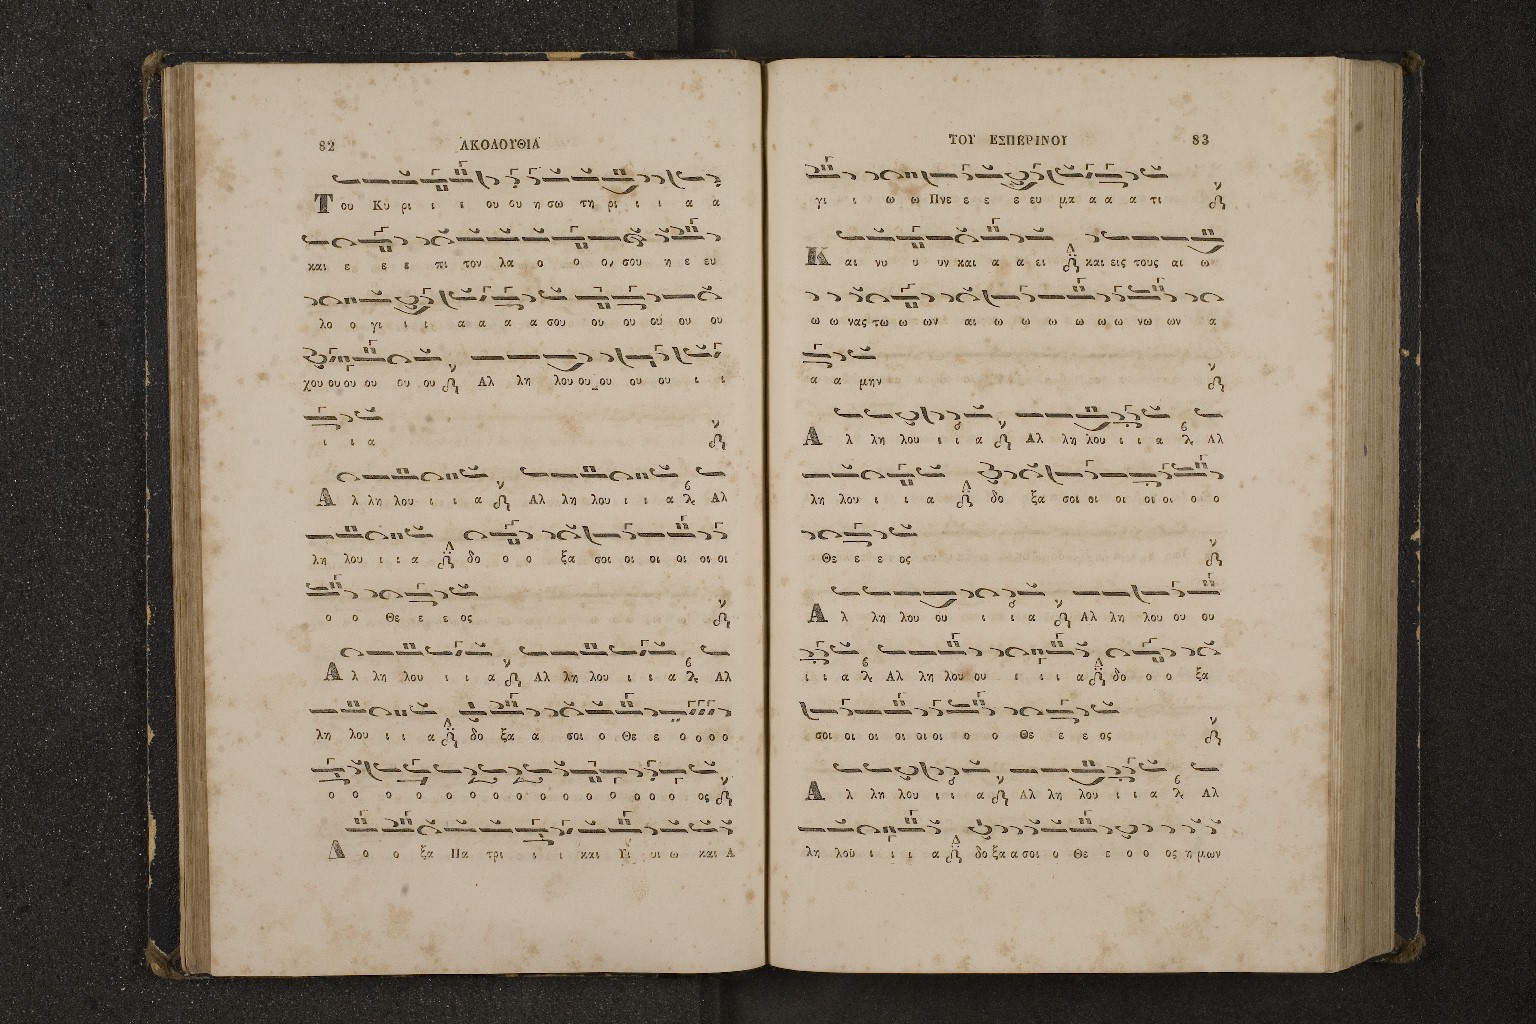 82 ΑΚΟΛΟΥΘΙΑ
Του Κυ ρι ι ι ου ου η σω τη ρι ι ι α α
και ε ε ε πι τον λα ο ο ο, σου η ε ευ
λο ο γι ι ι α α α α σου ου ου ου ου ου
χου ου ου ου ου ου Αλ λη λου ου ου ου ου ι ι
ι ι α
Α λ λη λου ι ι α Αλ λη λου ι ι α Αλ
λη λου ι ι α δο ο ο ξα σοι οι οι οι οι οι
ο ο Θε ε ε ος
Α λ λη λου ι ι α Αλ λη λου ι ι α Αλ
λη λου ι ι α δο ξα α σοι ο Θε ε ο ο ο ο
ο ο ο ο ο ο ο ο ο ο ο ο ο ο ο ος
Δ ο ο ξα Πα τρι ι ι και Υι υι ω και Α
ΤΟΥ ΕΣΠΕΡΙΝΟΥ 83
γι ι ω ω Πνε ε ε ε ευ μα α α α τι
Κ αι νυ υ υν και α α ει και εις τους αι ω
ω ω νας τω ω ων αι ω ω ω ω ω ω νω ων α
α α μην
Α λ λη λου ι ι α Αλ λη λου ι ι α Αλ
λη λου ι ι α δο ξα σοι οι οι οι οι ο ο
Θε ε ε ος
Α λ λη λου ου ι ι α Αλ λη λου ου ου
ι ι α Αλ λη λου ου ι ι ι α δο ο ο ξα
σοι οι οι οι οι οι ο ο Θε ε ε ος
Α λ λη λου ι ι α Αλ λη λου ι ι α Αλ
λη λου ι ι ι α δο ξα α σοι ο Θε ε ο ο ος η μων